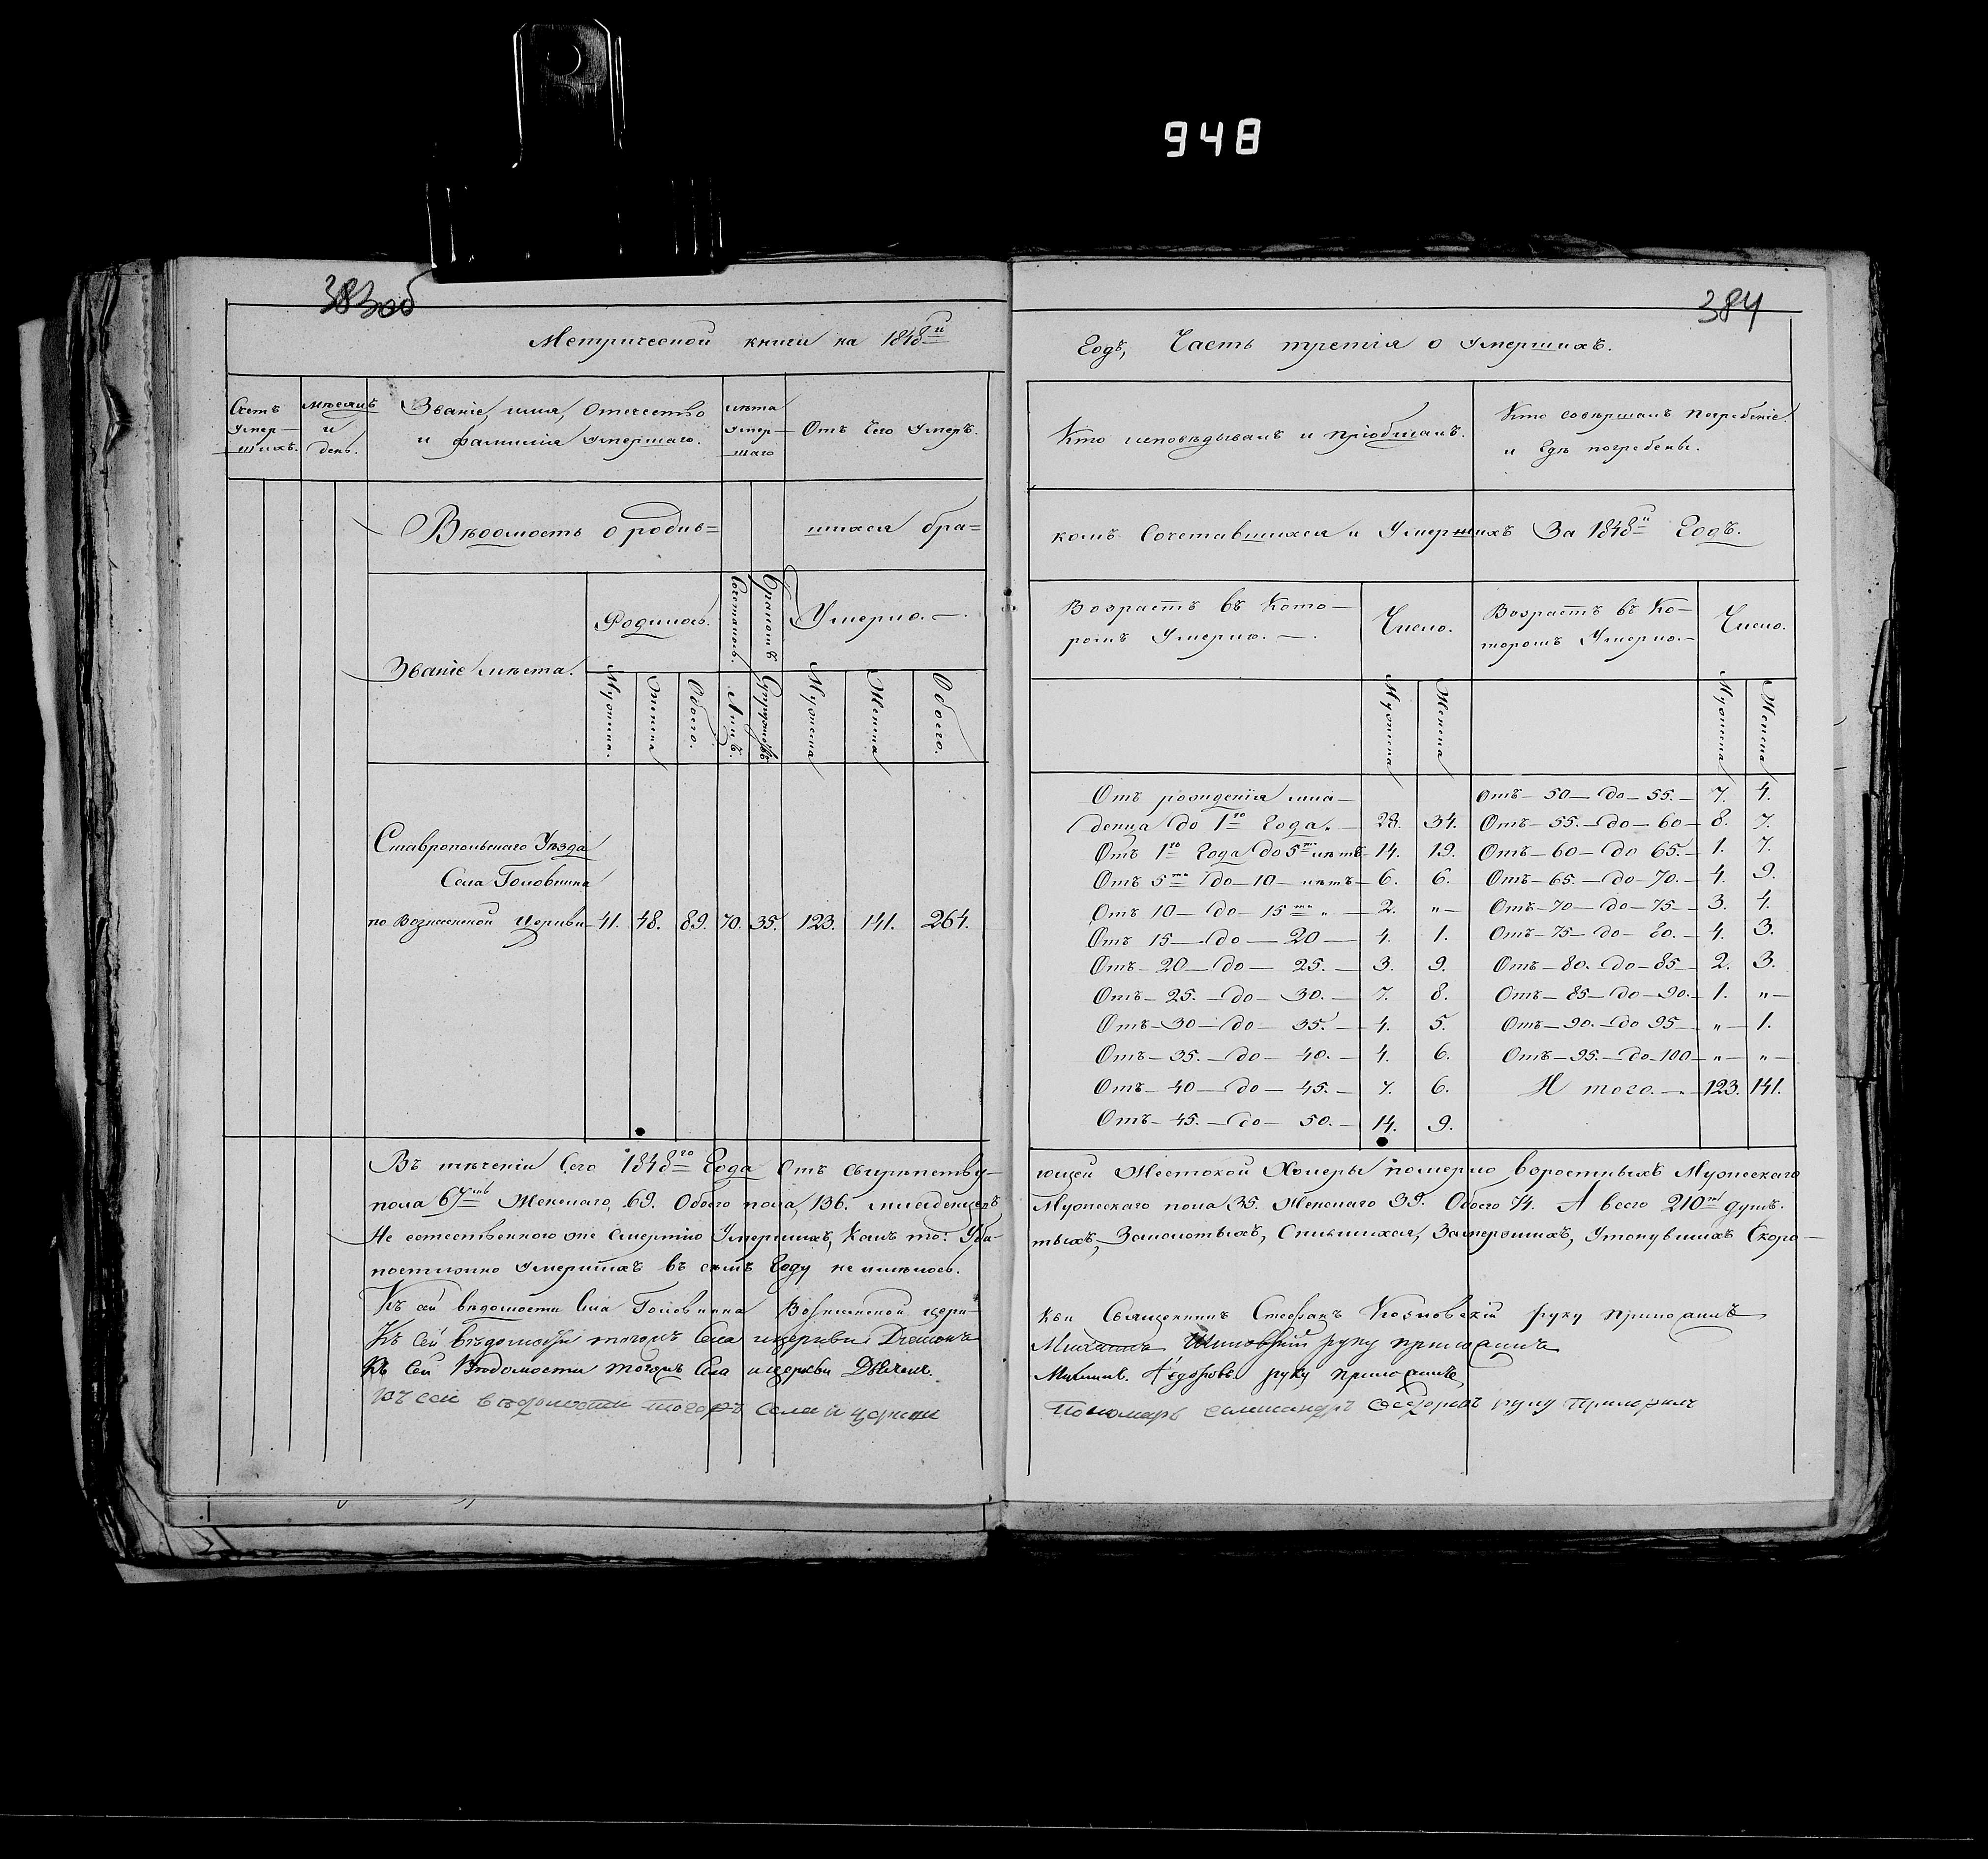 948
383об
384
Метрической книги на 1848й
Годъ, Часть третія о умершихъ.
Счетъ умер-шихъ.
мѣсяцъ и день.
Званіе, имя, отечество
и фамилія умершаго.
лѣта умер-шаго
Отъ чего умеръ.
Кто исповѣдывалъ и пріобщалъ.
Кто совершалъ погребеніе
и гдѣ погребены.
Вѣдомость о родив=шихся бра=
комъ сочетавшихся и умершихъ За 1848й Годъ.
Званіе мѣста.
Родилось.
Мужеска.
Женска
Обоего.
Бракомъ
Сочеталось.
Лицъ.
Супружествъ
Умерло.
Мужеска
Женска
Обоего.
Возрастъ въ кото-
ромъ умерло.
Число.
Мужеска
Женска
Возрастъ въ ко-
торомъ умерло.
Число.
Мужеска
Женска
Ставропольскаго Уѣзда
Села Головкина
по Вознесенской Церкви 41. 48. 89. 70. 35. 123. 141. 264.
Отъ рожденія мла-
денца до 1го года. 28. 34.
Отъ 1го года до 5ти лѣтъ 14. 19.
Отъ 5ти до 10 лѣтъ 6. 6.
Отъ 10 до 15ти 2. "
Отъ 15 до 20 4. 1.
Отъ 20 до 25. 3. 9.
Отъ 25. до 30. 7. 8.
Отъ 30 до 35. 4. 5.
Отъ 35. до 40. 4. 6.
Отъ 40 до 45. 7. 6.
Отъ 45. до 50. 14. 9.
Отъ 50 до 55. 7. 4.
Отъ 55. до 60 8. 7.
Отъ 60 до 65. 1. 7.
Отъ 65. до 70. 4. 9.
Отъ 70 до 75 3. 4.
Отъ 75 до 80. 4. 3.
Отъ 80. до 85 2. 3.
Отъ 85 до 90. 1. "
Отъ 90. до 95 " 1.
Отъ 95. до 100 " "
И того. 123. 141.
Въ теченіи сего 1848го года отъ свирѣпству-ющей жестокой холеры померло возростныхъ Мужескаго
пола 67мь Женскаго, 69. Обоего пола, 136. младенцевъ Мужескаго пола 35. Женскаго 39. Обоего 74. А всего 210ть душъ.
Не естественною же смертію умершихъ, какъ то: уби-тыхъ, Заколотыхъ, Спившихся, Замерзшихъ, Утонувшихъ Скоро-
постижно умершихъ въ семъ году не имѣлось.
Къ сей вѣдомости села Головкина Вознесенской церк-кви Священникъ Стефанъ руку приложилъ
Къ сей вѣдомости тогожъ села и церкви Діаконъ Михаилъ руку приложилъ
Къ сей Вѣдомости тогожъ села и церкви Дьячекъ Ѳедоровъ руку приложилъ
Къ сей вѣдомости тогожъ села и церкви Пономарь Александръ Ѳедоровъ руку приложилъ